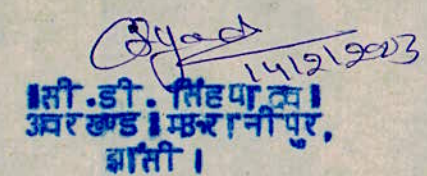 14/2/2003
।सी.डी. सिंह यादव।
अवर खण्ड । मऊरानीपुर,
झांसी ।